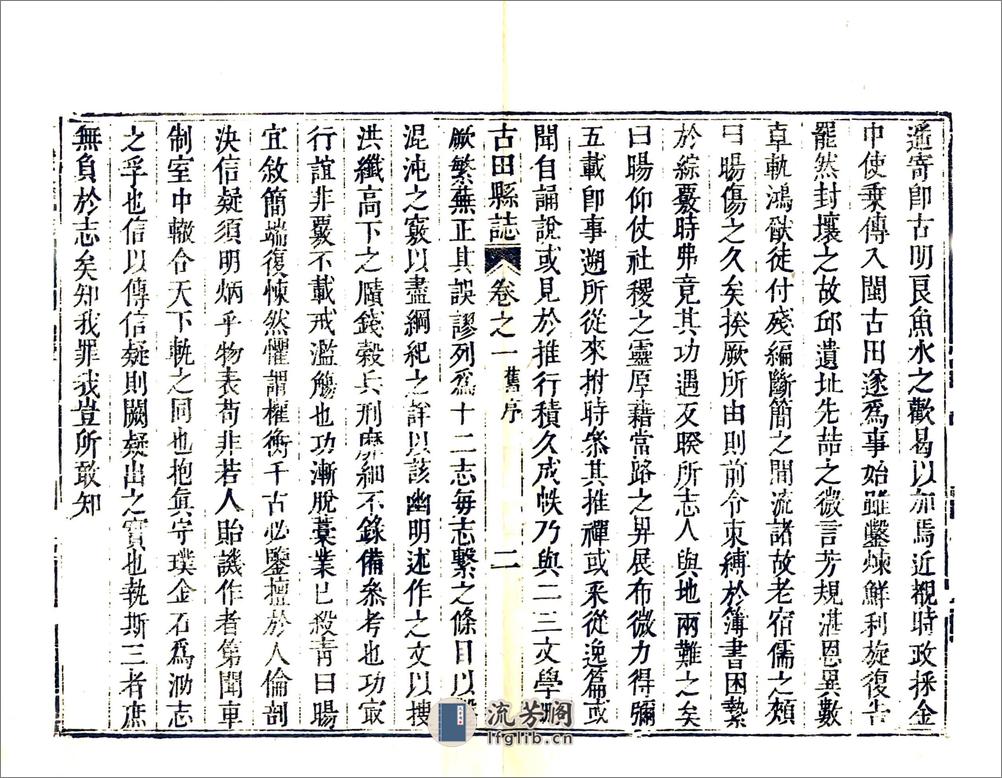 遞寄卽古明良魚水之歡曷以加焉近覩時政採金
中使乘傳入閩古田遂爲事始雖鑿煉鮮利旋復告
罷然封壤之故邱遺址先喆之微言芳規湛恩異數
卓軌鴻猷徒付殘編斷簡之間流諸故老宿儒之頰
曰暘傷之久矣揆厥所由則前令束縛於簿書困縶
於綜覈時弗竟其功遇又暌所志人與地兩難之矣
曰暘仰仗社稷之靈厚藉當路之畀展布微力得彌
五載卽事遡所從來拊時叅其推禪或采從逸篇或
聞自誦說或見於推行積久成帙乃與二三文學
古田縣誌 卷之一 舊序 二
厥繁蕪正其誤謬列爲十二志每志繫之條目以
混沌之竅以盡綱紀之詳以該幽明述作之文以搜
洪纖高下之賾錢穀兵刑靡細不錄備叅考也功寂
行誼非覈不載戒濫觴也功漸脫藁業已殺靑曰暘
宜敘簡端復悚然懼謂權衡千古必鑒擅於人倫剖
決信疑須明炳乎物表苟非若人貽譏作者第聞車
制室中轍合天下軌之同也抱眞守璞金石爲泐志
之孚也信以傳信疑則闕疑出之實也執斯三者庶
無負於志矣知我罪我豈所敢知
流芳閣
lfglib.cn